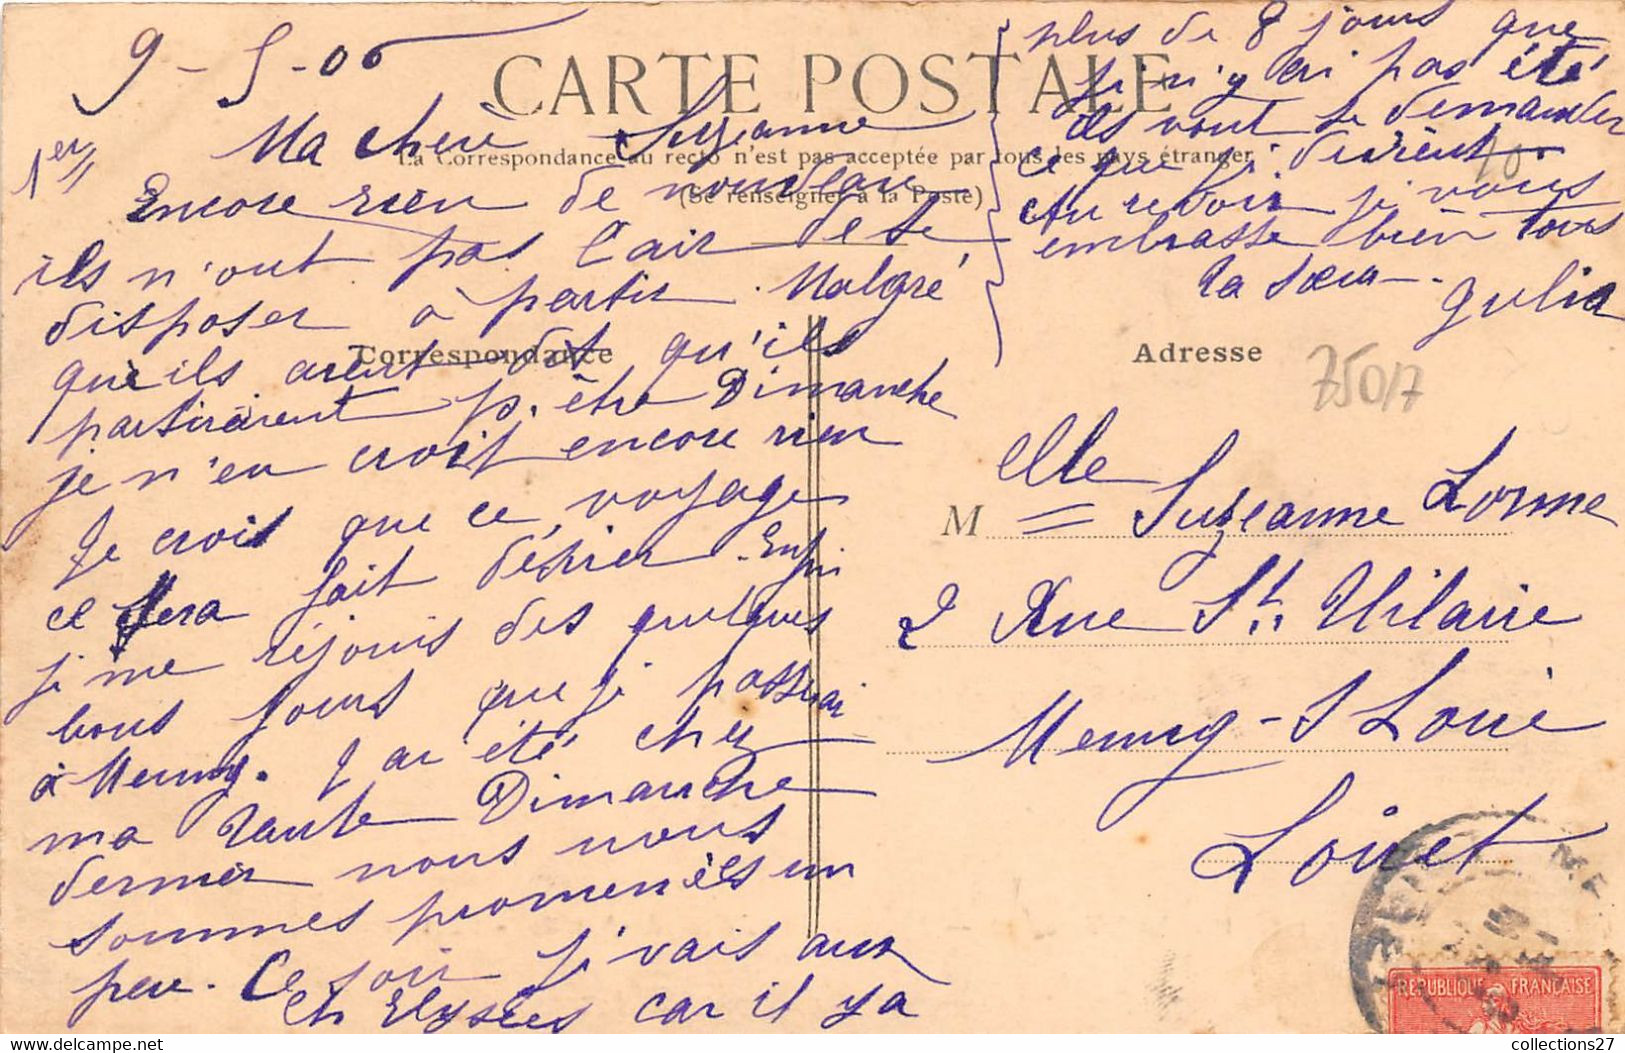 9-5-06
CARTE POSTALE
La Correspondance au recto n'est pas acceptée par tous les pays étrangers
(Se renseigner à la Poste)
Correspondance
Adresse
1er
Ma chère Suzanne
Encore rien de nouveau
ils n'ont pas l'air de se
disposer à partir. Malgré
qu'ils avaient dit qu'ils
partiraient p. être Dimanche
je n'en croit encore rien
Je crois que ce voyage
ce sera fait désirer. Enfin
je me réjouis des quelques
bons jours que je passerai
à Meung. J'ai été chez
ma Tante Dimanche
dernier nous nous
sommes promenées un
peu. Ce soir je vais aux
Ch Elysées car il y a
plus de 8 jours que
je n'y ai pas été
ils vont se demander
ce que je devient
Au revoir je vous
embrasse bien tous
Ta sœur
Julia
75017
10
M elle Suzanne Lorme
2 Rue St Hilaire
Meung-s Loire
Loiret
REPUBLIQUE FRANÇAISE
collections27